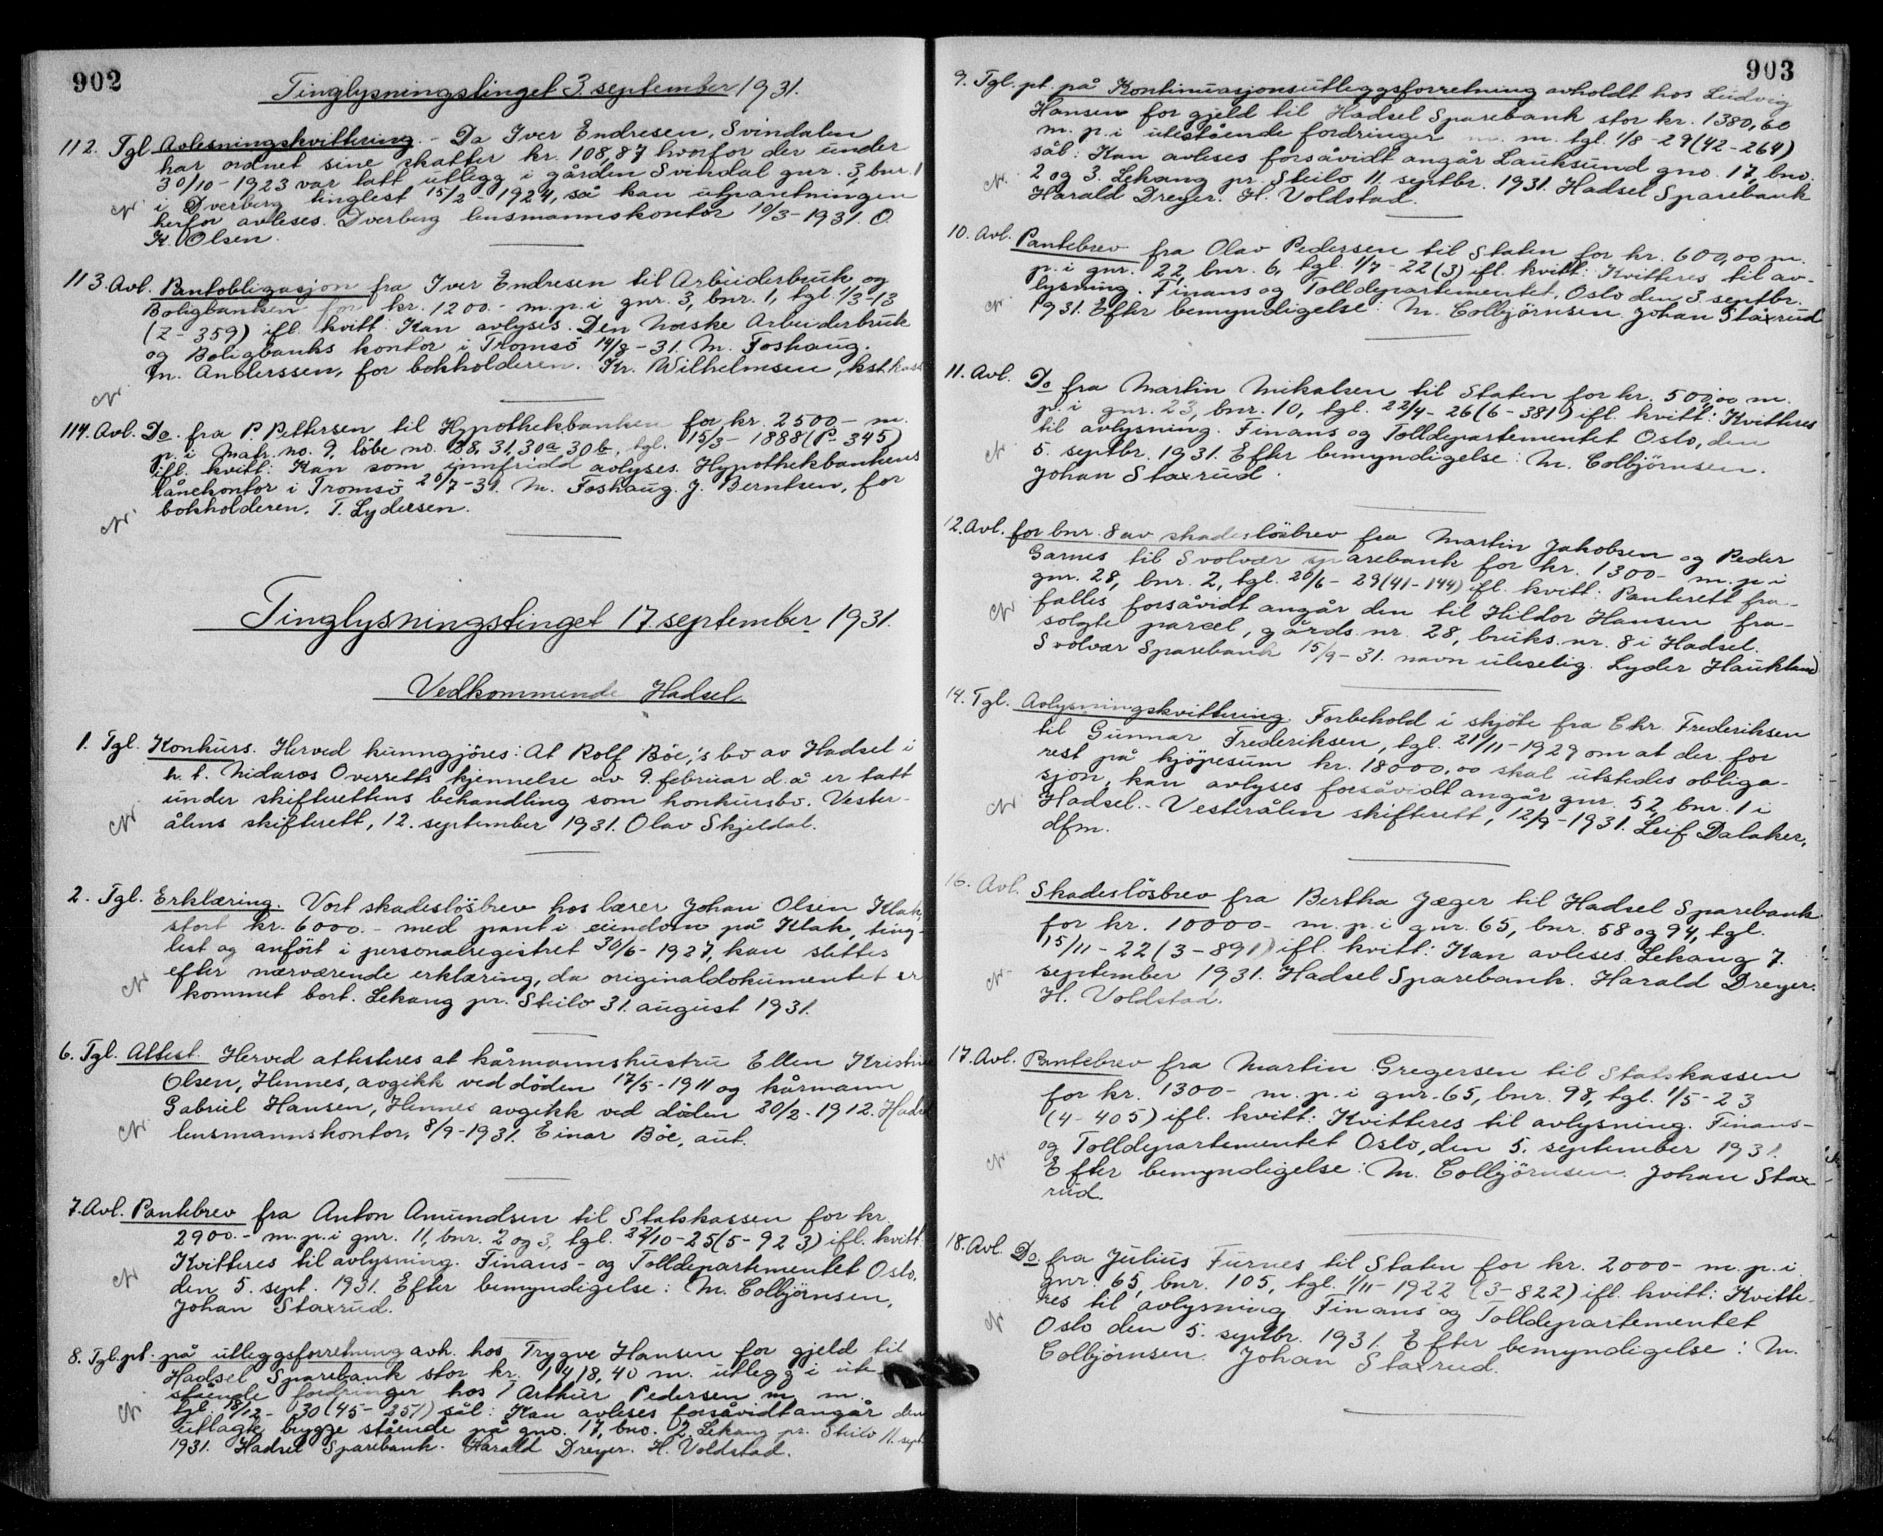 902
Tinglysningstinget 3. september 1931.
112. Tgl. Avlesningskvittering. - Da Iver Endresen, Svindalen
har ordnet sine skatter kr. 108,87 hvorfor der under
30/10-1923 var tatt utlegg i gården Svindal gnr. 3, bnr. 1
i Dverberg tinglest 15/2-1924, så kan utpantningen
herfor avleses. Dverberg lensmannskontor 10/3-1931. O.
K. Olsen.
113. Avl. Pantobligasjon fra Iver Endresen til Arbeiderbruk og
Boligbanken for kr. 1200.- m.p.i gnr. 3, bnr. 1, tgl. 1/3-13
(Z-359) ifl. kvitt: Kan avlyses. Den Norske Arbeiderbruk
og Boligbanks kontor i Tromsö 14/8-31. M. Foshaug.
M. Anderssen, for bokholderen. Kr. Wilhelmsen, kst. kass
114. Avl. Do. fra P. Pettersen til Hypothekbanken for kr. 2500- m.
p.i Matr. no. 9, löbe no. 28, 31, 30a, 30b, tgl. 15/3-1888 (P. 345)
ifl. kvitt: Kan som innfridd avlyses. Hypothekbankens
lånekontor i Tromsö 20/7-31. M. Foshaug. J. Berntsen, for
bokholderen. T. Lydersen.
Tinglysningstinget 17. september 1931.
Vedkommende Hadsel.
1. Tgl. Konkurs. Herved kunngjöres: At Rolf Böe,'s bo av Hadsel i
h. t. Nidaros Overretts kjennelse av 9. februar d.a. er tatt
under skifterettens behandling som konkursbo. Vester-
ålens skifterett, 12. september 1931. Olav Skjeldal.
2. Tgl. Erklæring. Vort skadeslösbrev hos lærer Johan Olsen Klak,
stort kr. 6000.- med pant i eiendom på Klak, ting-
lest og anfört i personalregistret 30/6-1927, kan slettes
efter nærværende erklæring, da originaldokumentet er
kommet bort. Lekang pr. Stilo 31. august 1931.
6. Tgl. Attest. Herved attesteres at kårmannshustru Ellen Kristine
Olsen, Hennes, avgikk ved döden 17/5-1911 og kårmann
Gabriel Hansen, Hennes avgikk ved döden 20/2-1912. Hadsel
lensmannskontor, 8/9-1931. Einar Böe, aut.
7. Avl. Pantebrev fra Anton Amundsen til Statskassen for kr.
2900.- m.p.i gnr. 11, bnr. 2 og 3, tgl. 22/10-25 (5-923) ifl. kvitt:
Kvitteres til avlysning. Finans- og Tolldepartementet Oslo,
den 5. sept. 1931. Efter bemyndigelse: M. Colbjörnsen,
Johan Staxrud.
8. Tgl. pt. på utleggsforretning avh. hos Trygve Hansen for gjeld til
Hadsel Sparebank stor kr. 1418,40 m. utlegg i ute-
stående fordringer hos Arthur Pedersen m. m.
tgl. 18/12-30 (45-351) sål: Kan avleses forsåvidt angår den
utlagte brygge stående på gno. 17, bno. 2. Lekang pr. Stilo 11. sept.
1931. Hadsel Sparebank. Harald Dreyer. H. Voldstad.
903
9. Tgl. pt. på Kontinuasjonsutleggsforretning avholdt hos Ludvig
Hansen for gjeld til Hadsel Sparebank stor kr. 1380,60
m. p. i utestående fordringer m. m. tgl. 1/8-29 (42-264)
sål: Kan avleses forsåvidt angår Lauksund gno. 17, bno.
2 og 3. Lekang pr. Stilo 11 septbr. 1931. Hadsel Sparebank
Harald Dreyer. H. Voldstad.
10. Avl. Pantebrev fra Olav Pedersen til Staten for kr. 600,00 m.
p. i gnr. 22, bnr. 6, tgl. 1/7-22 (3) ifl. kvitt: Kvitteres til av-
lysning. Finans og Tolldepartementet, Oslo den 3 septbr.
1931. Efter bemyndigelse: M. Colbjörnsen. Johan Staxrud
11. Avl. Do fra Martin Mikalsen til Staten for kr. 500,00 m.
p. i gnr. 23, bnr. 10, tgl. 22/4-26 (6-381) ifl. kvitt: Kvitteres
til avlysning. Finans og Tolldepartementet Oslo, den
5. septbr. 1931. Efter bemyndigelse: M. Colbjörnsen.
Johan Staxrud.
12. Avl. for bnr. 8 av skadeslösbrev fra Martin Jakobsen og Peder
Garnes til Svolvær Sparebank for kr. 1300- m. p. i
gnr. 28, bnr. 2, tgl. 20/6-29 (41-144) ifl. kvitt: Panterett fra-
falles forsåvidt angår den til Hildor Hansen fra-
solgte parcel, gårds.nr. 28, bruks.nr. 8 i Hadsel.
Svolvær Sparebank 15/9-31. navn uleselig. Lyder Haukland
14. Tgl. Avlysningskvittering. Forbehold i skjöte fra Chr. Frederiksen
til Gunnar Frederiksen, tgl. 21/11-1929 om at der for
rest på kjöpesum kr. 18000,00 skal utstedes obliga-
sjon, kan avlyses forsåvidt angår gnr. 52, bnr. 1 i
Hadsel.- Vesterålen skifterett, 12/9-1931. Leif Dalaker,
dfm.
16. Avl. Skadeslösbrev fra Bertha Jæger til Hadsel Sparebank
for kr. 10000- m. p. i gnr. 65, bnr. 58 og 94, tgl.
15/11-22 (3-891) ifl. kvitt: Kan avleses. Lekang 7.
september 1931. Hadsel Sparebank. Harald Dreyer.
H. Voldstad.
17. Avl. Pantebrev fra Martin Gregersen til Statskassen
for kr. 1300- m. p. i gnr. 65, bnr. 98, tgl. 1/5-23
(4-405) ifl. kvitt: Kvitteres til avlysning. Finans-
og Tolldepartementet Oslo, den 5. september 1931.
Efter bemyndigelse: M. Colbjörnsen. Johan Stax-
rud.
18. Avl. Do. fra Julius Furnes til Staten for kr. 2000- m. p. i
gnr. 65, bnr. 105, tgl. 1/11-1922 (3-822) ifl. kvitt: Kvitte-
res til avlysning Finans og Tolldepartementet
Oslo den 5. septbr. 1931. Efter bemyndigelse: M.
Colbjörnsen. Johan Staxrud.